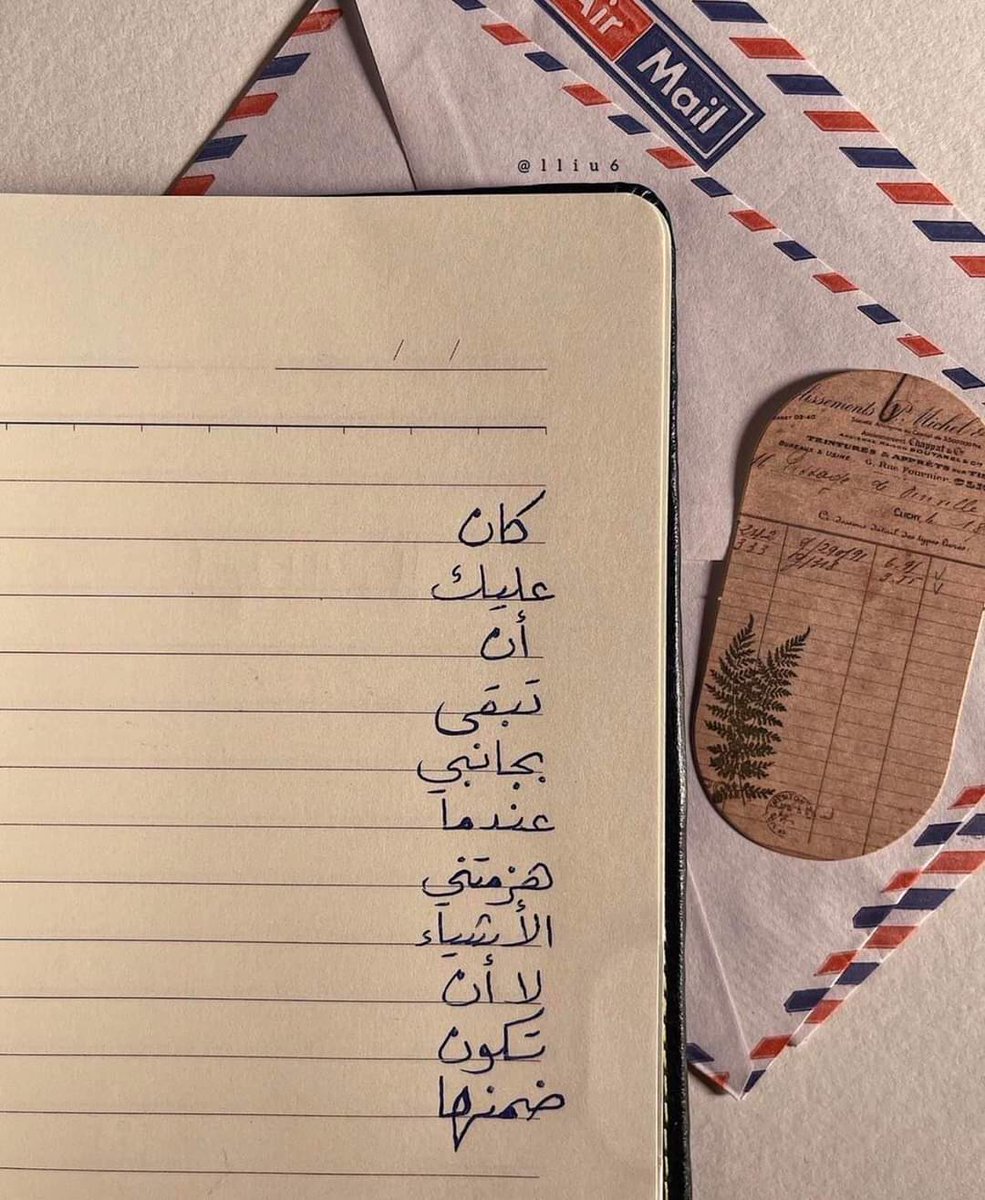 Air
Mail
@lliu6
كان
عليك
أن
تبقى
بجانبي
عندما
هزمتني
الأشياء
لا أن
تكون
ضمنها
P. Michel
Chappat & Cie
TEINTURES & APPRÊTS SUR
BUREAUX & USINE 6, Rue Fournier
CLICHY, le